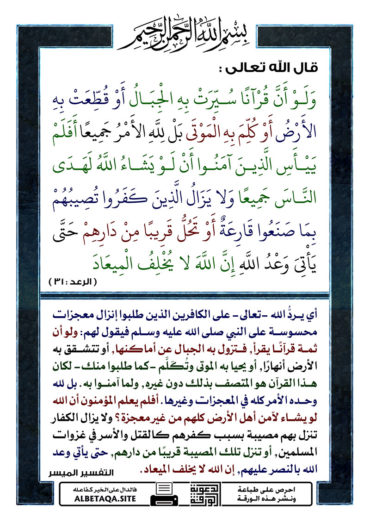 بسم الله الرحمن الرحيم
قال الله تعالى :
وَلَوْ أَنَّ قُرْآنًا سُيِّرَتْ بِهِ الْجِبَالُ أَوْ قُطِّعَتْ بِهِ
الأَرْضُ أَوْ كُلِّمَ بِهِ الْمَوْتَى بَلْ لِلَّهِ الأَمْرُ جَمِيعًا أَفَلَمْ
يَيْـأَسِ الَّذِيـنَ آمَنُـوا أَنْ لَـوْ يَشَـاءُ اللَّهُ لَهَـدَى
النَّـاسَ جَمِيعًا وَلا يَزَالُ الَّذِينَ كَفَرُوا تُصِيبُهُمْ
بِمَا صَنَعُوا قَارِعَةٌ أَوْ تَحُلُّ قَرِيبًا مِنْ دَارِهِمْ حَتَّى
يَأْتِيَ وَعْدُ اللَّهِ إِنَّ اللَّهَ لا يُخْلِفُ الْمِيعَادَ
( الرعد : ٣١ )
أي يـردُّ الله -تعالى- على الكافرين الذين طلبوا إنزال معجزات
محسوسـة على النبي صلى الله عليه وسـلم فيقول لهم: ولو أن
ثمـة قرآنًـا يقرأ, فـتزول به الجبال عن أماكنها, أو تتشـقق به
الأرض أنهارًا, أو يحيا به الموتى وتُكلَّم -كما طلبوا منك- لكان
هـذا القرآن هو المتصف بذلك دون غيره, ولما آمنـوا به . بل لله
وحـده الأمر كله في المعجزات وغيرها . أفلم يعلم المؤمنون أن الله
لو يشـاء لآمن أهل الأرض كلهم من غير معجزة؟ ولا يزال الكفار
تنزل بهم مصيبة بسبب كفرهم كالقتل والأسر في غزوات
المسلمين, أو تنزل تلك المصيبة قريبًا من دارهم, حتى يأتي وعد
الله بالنصر عليهم, إن الله لا يخلف الميعاد.
التفسير الميسر
احرص على طباعة
ونشر هذه الورقة
الدعوية
الورقة
فالدال على الخير كفاعله
ALBETAQA.SITE